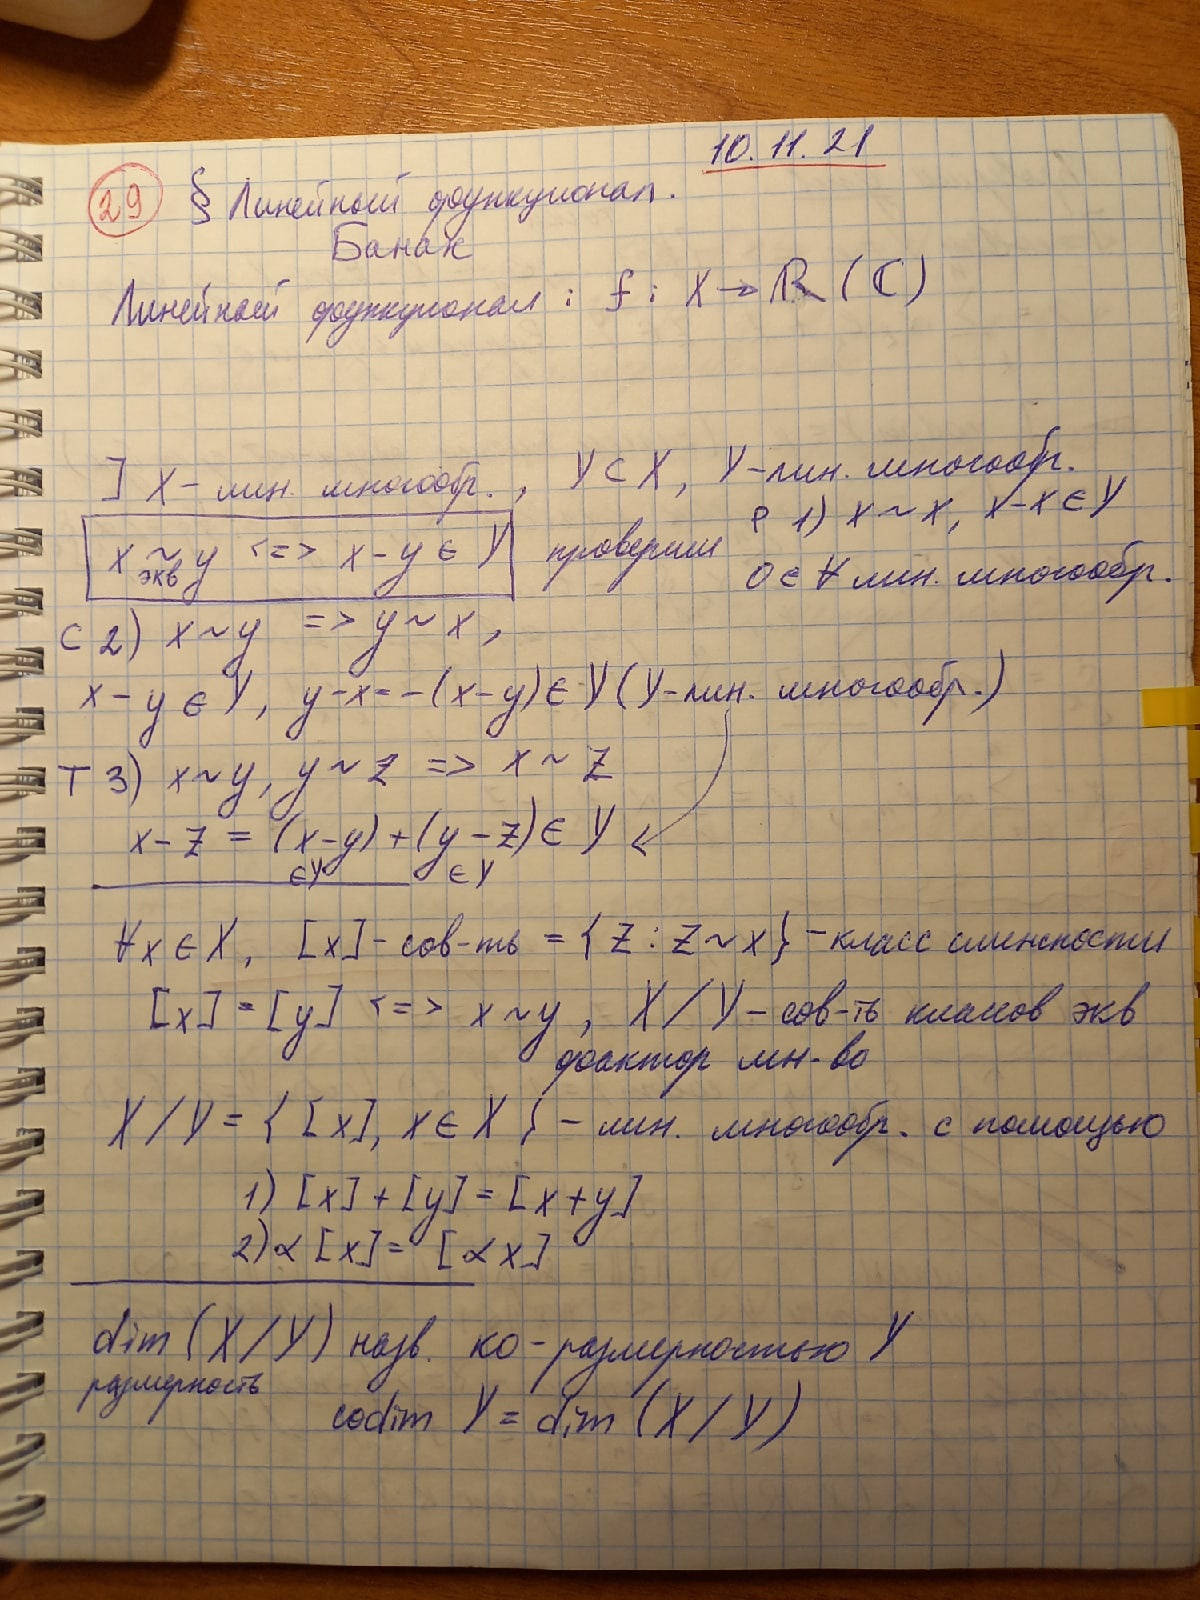 10.11.21
29 § Линейный функционал.
Банах
Линейный функционал : f : X → ℝ (ℂ)
] X - лин. многообр., Y ⊂ X, Y - лин. многообр.
x ~ y <=> x - y ∈ Y проверим Р 1) x ~ x, x - x ∈ Y
экв
0 ∈ ∀ лин. многообр.
С 2) x ~ y => y ~ x,
x - y ∈ Y, y - x = -(x - y) ∈ Y (Y - лин. многообр.)
Т 3) x ~ y, y ~ z => x ~ z
x - z = (x - y) + (y - z) ∈ Y
∈ Y ∈ Y
∀ x ∈ X, [x] - сов-ть = {z : z ~ x} - класс смежности
[x] = [y] <=> x ~ y, X / Y - сов-ть классов экв
фактор мн-во
X / Y = {[x], x ∈ X} - лин. многообр. с помощью
1) [x] + [y] = [x + y]
2) α [x] = [α x]
dim (X / Y) назв. ко-размерностью Y
размерность
codim Y = dim (X / Y)